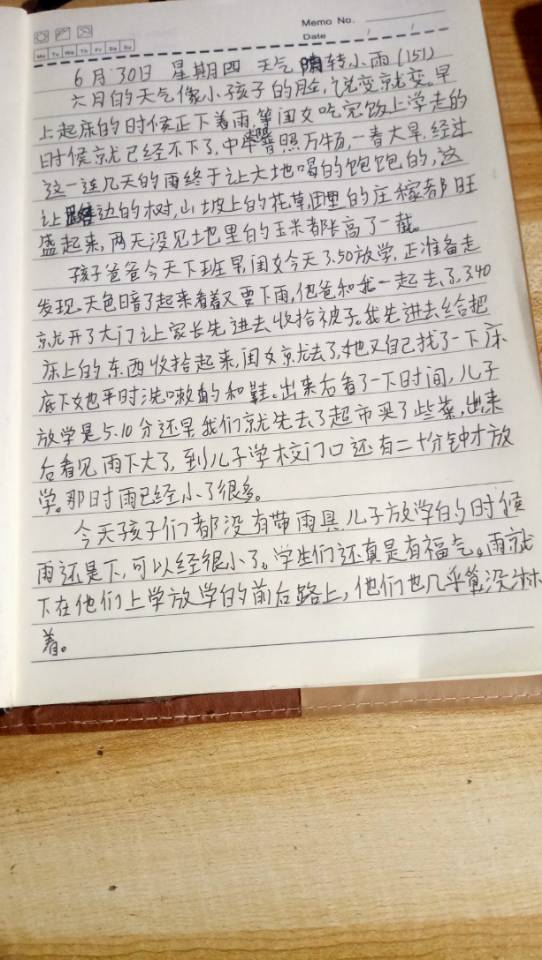 Memo No.
Date / /
Mo Tu We Th Fr Sa Su
6月30日 星期四 天气 晴转小雨(151)
六月的天气像小孩子的脸,说变就变。早
上起床的时侯正下着雨,等闺女吃完饭上学走的
时侯就已经不下了,中午普照万物,一春大旱,经过
这一连几天的雨终于让大地喝的饱饱的,这
让路边的树,山坡上的花草,田里的庄稼都旺
盛起来,两天没见地里的玉米都长高了一截。
孩子爸爸今天下班早,闺女今天3.50放学,正准备走
发现天色暗了起来看着又要下雨,他爸和我一起去了,340
就开了大门让家长先进去收拾被子。我先进去给把
床上的东西收拾起来,闺女就去了,她又自己找了一下床
底下她平时洗嗽的和鞋。出来后看了一下时间,儿子
放学是5.10分还早我们就先去了超市买了些菜,出来
后看见雨下大了,到儿子学校门口还有二十分钟才放
学。那时雨已经小了很多。
今天孩子们都没有带雨具儿子放学的时侯
雨还是下,可以经很小了。学生们还真是有福气。雨就
下在他们上学放学的前后路上,他们也几乎算没淋
着。